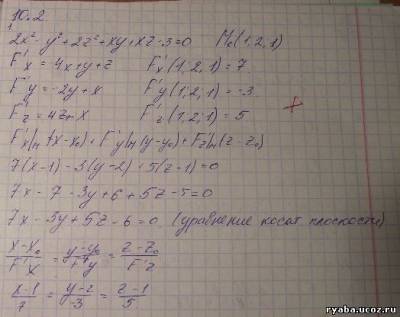 10.2
2x² - y² + 2z² + xy + xz - 3 = 0    M₀(1,2,1)
F'x = 4x + y + z    F'x(1,2,1) = 7
F'y = -2y + x    F'y(1,2,1) = -3
F'z = 4z + x    F'z(1,2,1) = 5
F'x|M (x-x₀) + F'y|M (y-y₀) + F'z|M (z-z₀)
7(x-1) - 3(y-2) + 5(z-1) = 0
7x - 7 - 3y + 6 + 5z - 5 = 0
7x - 3y + 5z - 6 = 0 (уравнение касат плоскости)
x-x₀/F'x = y-y₀/F'y = z-z₀/F'z
x-1/7 = y-2/-3 = z-1/5
www.ryaba.ucoz.ru